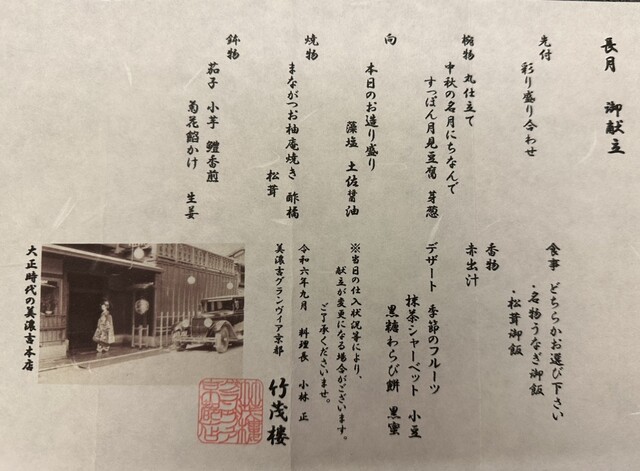 長月　御献立
先付
彩り盛り合わせ
椀物　丸仕立て
中秋の名月にちなんで
すっぽん月見豆腐　芽葱
向
本日のお造り盛り
藻塩　土佐醤油
焼物
まながつお柚庵焼き　酢橘
松茸
鉢物
茄子　小芋　鱧香煎
菊花餡かけ　生姜
食事　どちらかお選び下さい
・名物うなぎ御飯
・松茸御飯
香物
赤出汁
デザート　季節のフルーツ
抹茶シャーベット　小豆
黒糖わらび餅　黒蜜
※当日の仕入状況等により、
献立が変更になる場合がございます。
ご了承くださいませ。
令和六年九月　料理長　小林　正
美濃吉グランヴィア京都
竹茂楼
大正時代の美濃吉本店